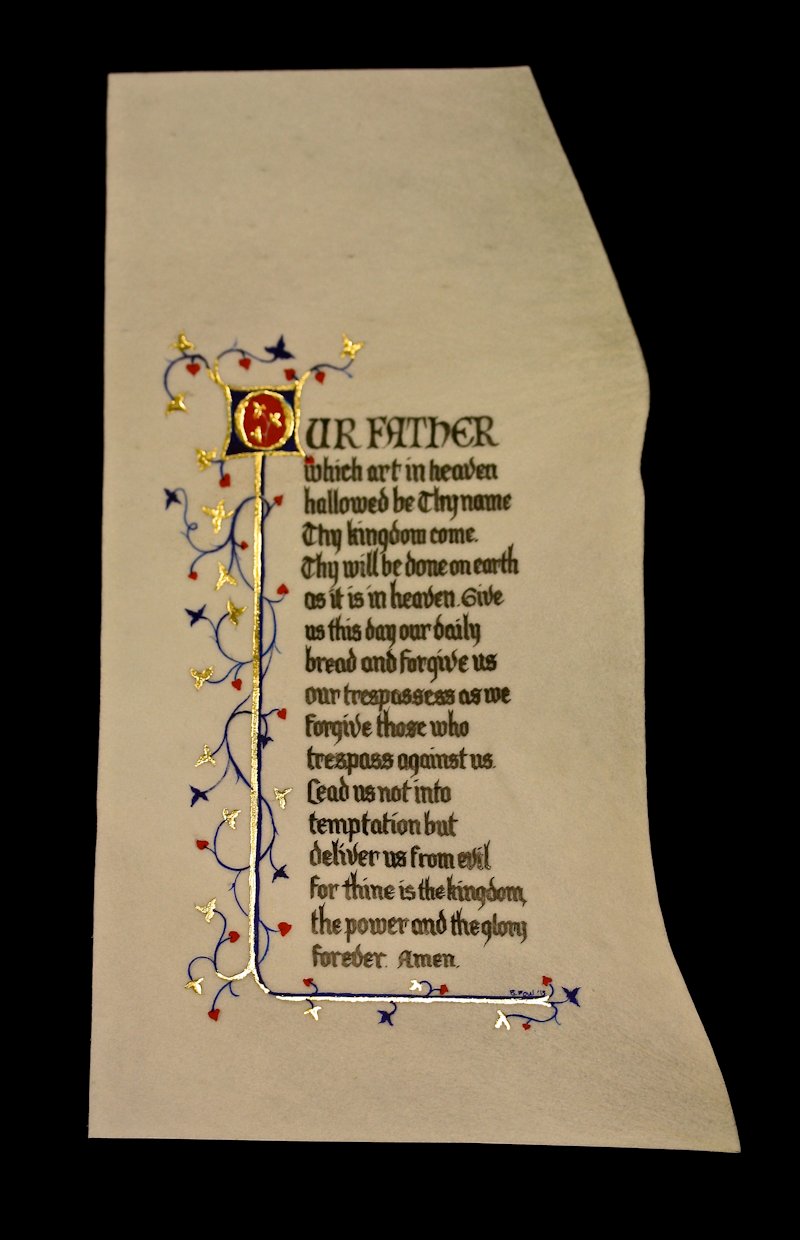 OUR FATHER
which art in heaven
hallowed be Thy name
Thy kingdom come.
Thy will be done on earth
as it is in heaven. Give
us this day our daily
bread and forgive us
our trespassess as we
forgive those who
trespass against us.
Lead us not into
temptation but
deliver us from evil
for thine is the kingdom,
the power and the glory
forever. Amen.